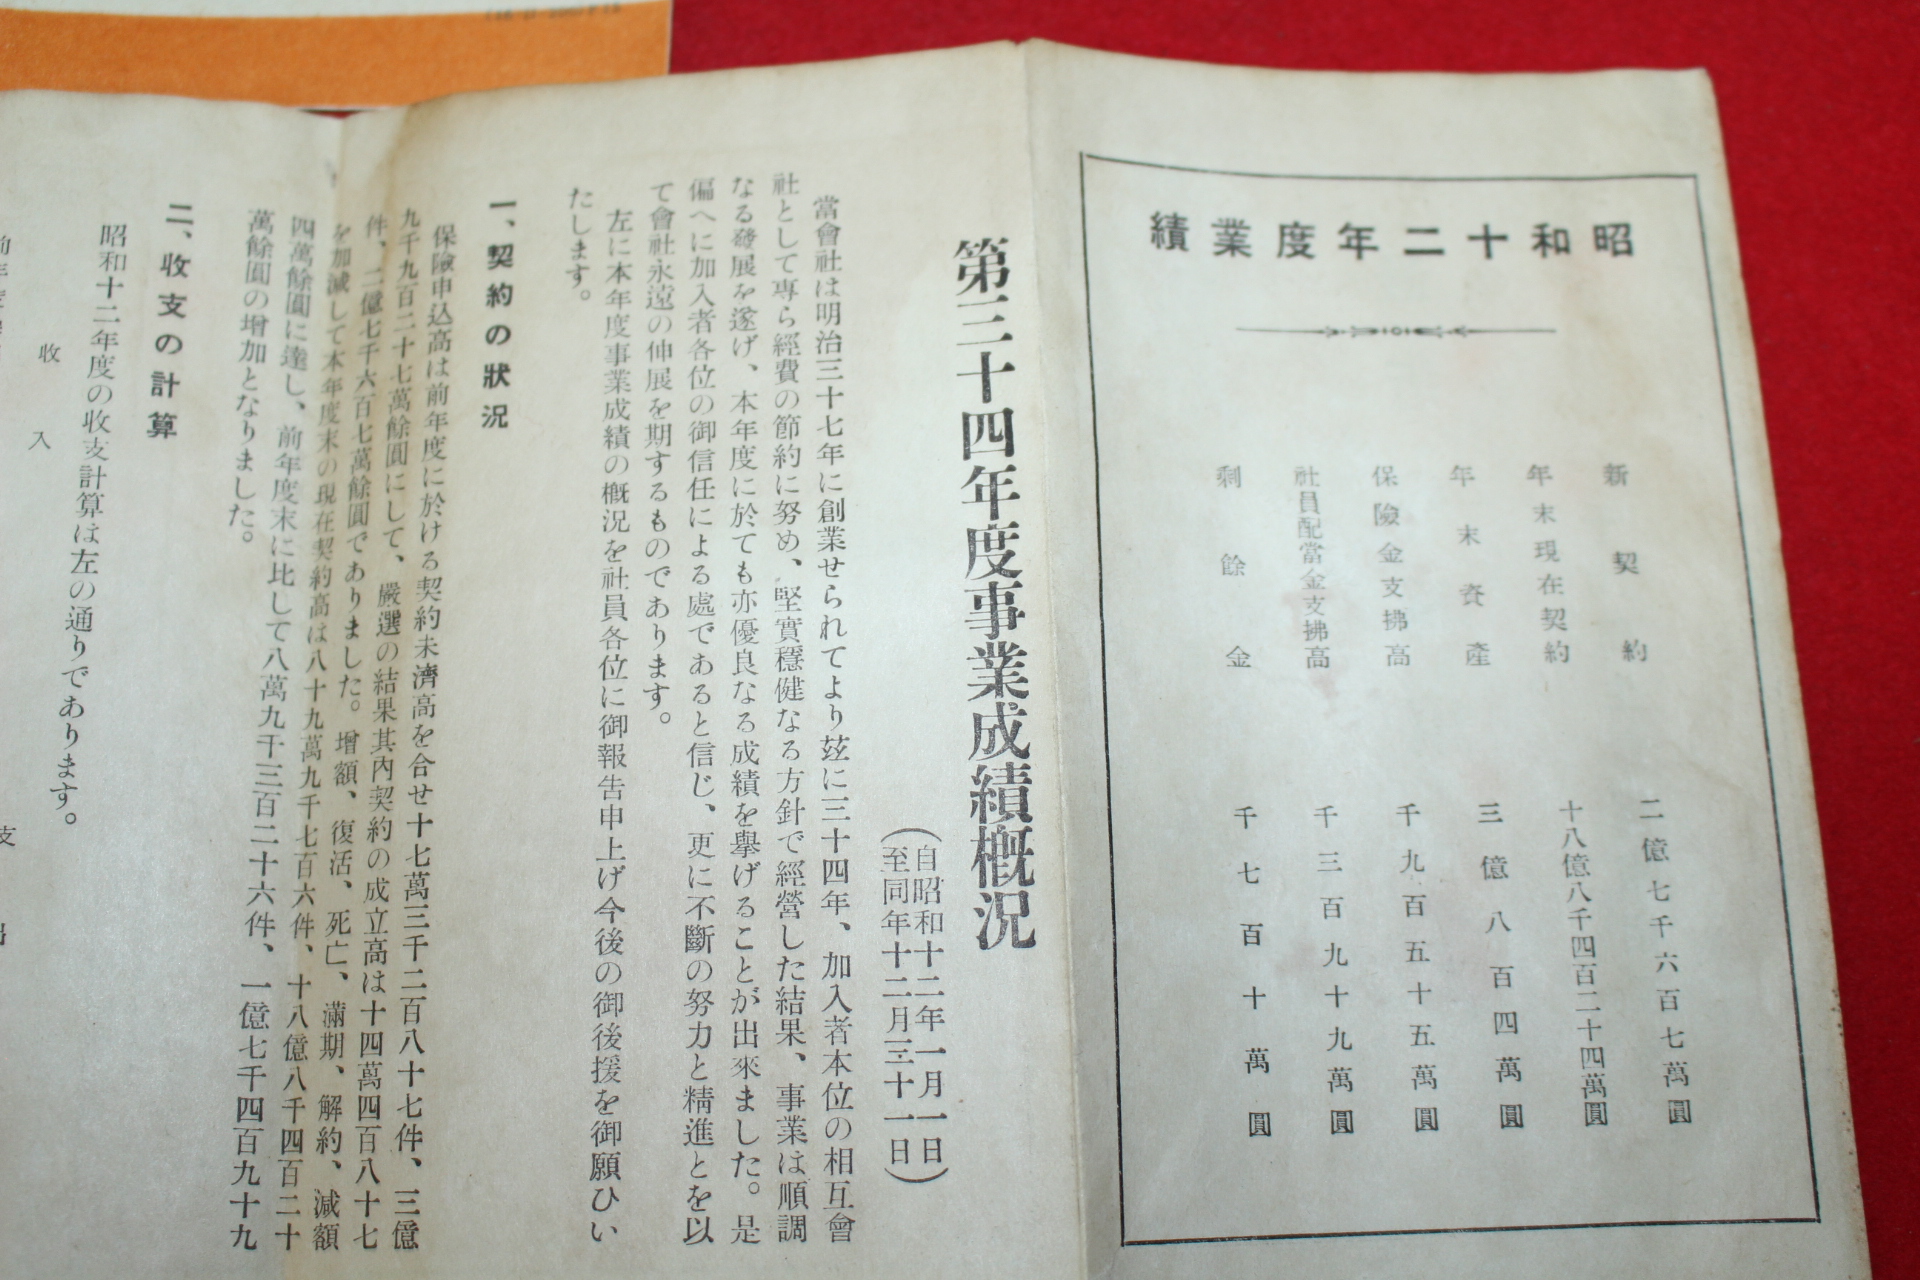 昭和十二年度業績
新契約 二億七千六百七萬圓
年末現在契約 十八億八千四百二十四萬圓
年末資産 三億八百四萬圓
保險金支拂高 千九百五十五萬圓
社員配當金支拂高 千三百九十九萬圓
剩餘金 千七百十萬圓
第三十四年度事業成績概況
（自昭和十二年一月一日
至同年十二月三十一日）
當會社は明治三十七年に創業せられてより玆に三十四年、加入者本位の相互會
社として專ら經費の節約に努め、堅實穩健なる方針で經營した結果、事業は順調
なる發展を遂げ、本年度に於ても亦優良なる成績を擧げることが出來ました。是
偏へに加入者各位の御信任による處であると信じ、更に不斷の努力と精進とを以
て會社永遠の伸展を期するものであります。
左に本年度事業成績の概況を社員各位に御報告申上げ今後の御後援を御願ひい
たします。
一、契約の狀況
保險申込高は前年度に於ける契約未濟高を合せ十七萬三千二百八十七件、三億
九千九百二十七萬餘圓にして、嚴選の結果其內契約の成立高は十四萬四百八十七
件、二億七千六百七萬餘圓でありました。增額、復活、死亡、滿期、解約、減額
を加減して本年度末の現在契約高は八十九萬九千七百六件、十八億八千四百二十
四萬餘圓に達し、前年度末に比して八萬九千三百二十六件、一億七千四百九十九
萬餘圓の增加となりました。
二、收支の計算
昭和十二年度の收支計算は左の通りであります。
收入
支出